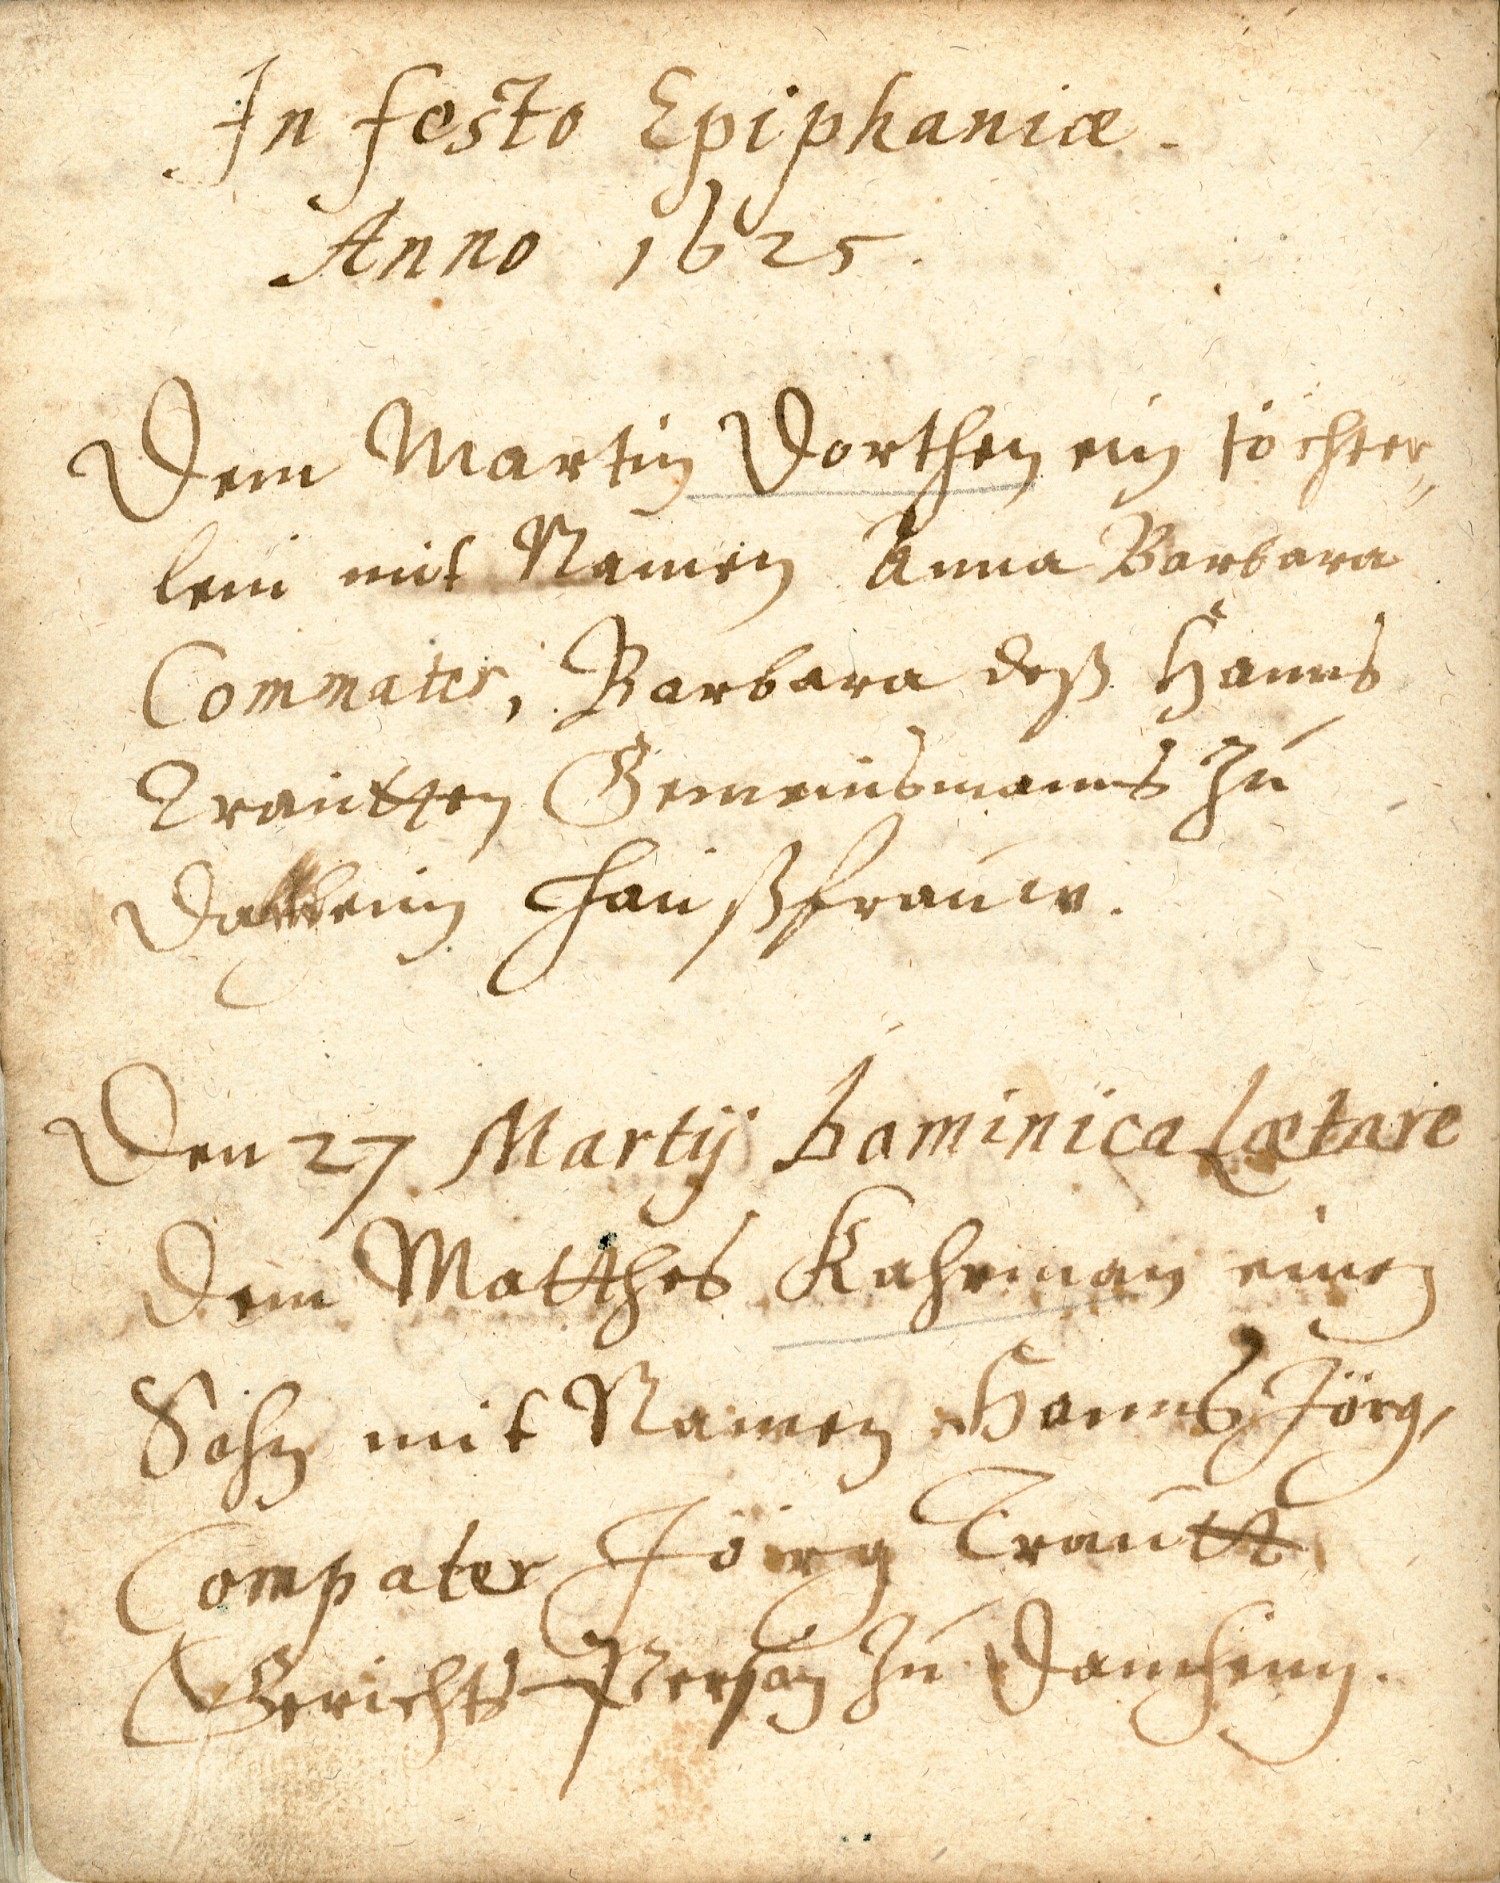 In festo Epiphaniæ.
Anno 1625.
Dem Martin Dorthen ein töchter„
lein mit Namen Anna Barbara
Commater, Barbara deß Hanns
Trautten Gemeinsmanns Zu
haußfrauw.
Den 27 Martij Dominica Lætare
Dem Matthes Kahrman einen
Sohn mit Namen Hanns Jörg,
Compater Jörg Trautt
Gerichts Person Zu Damheim.